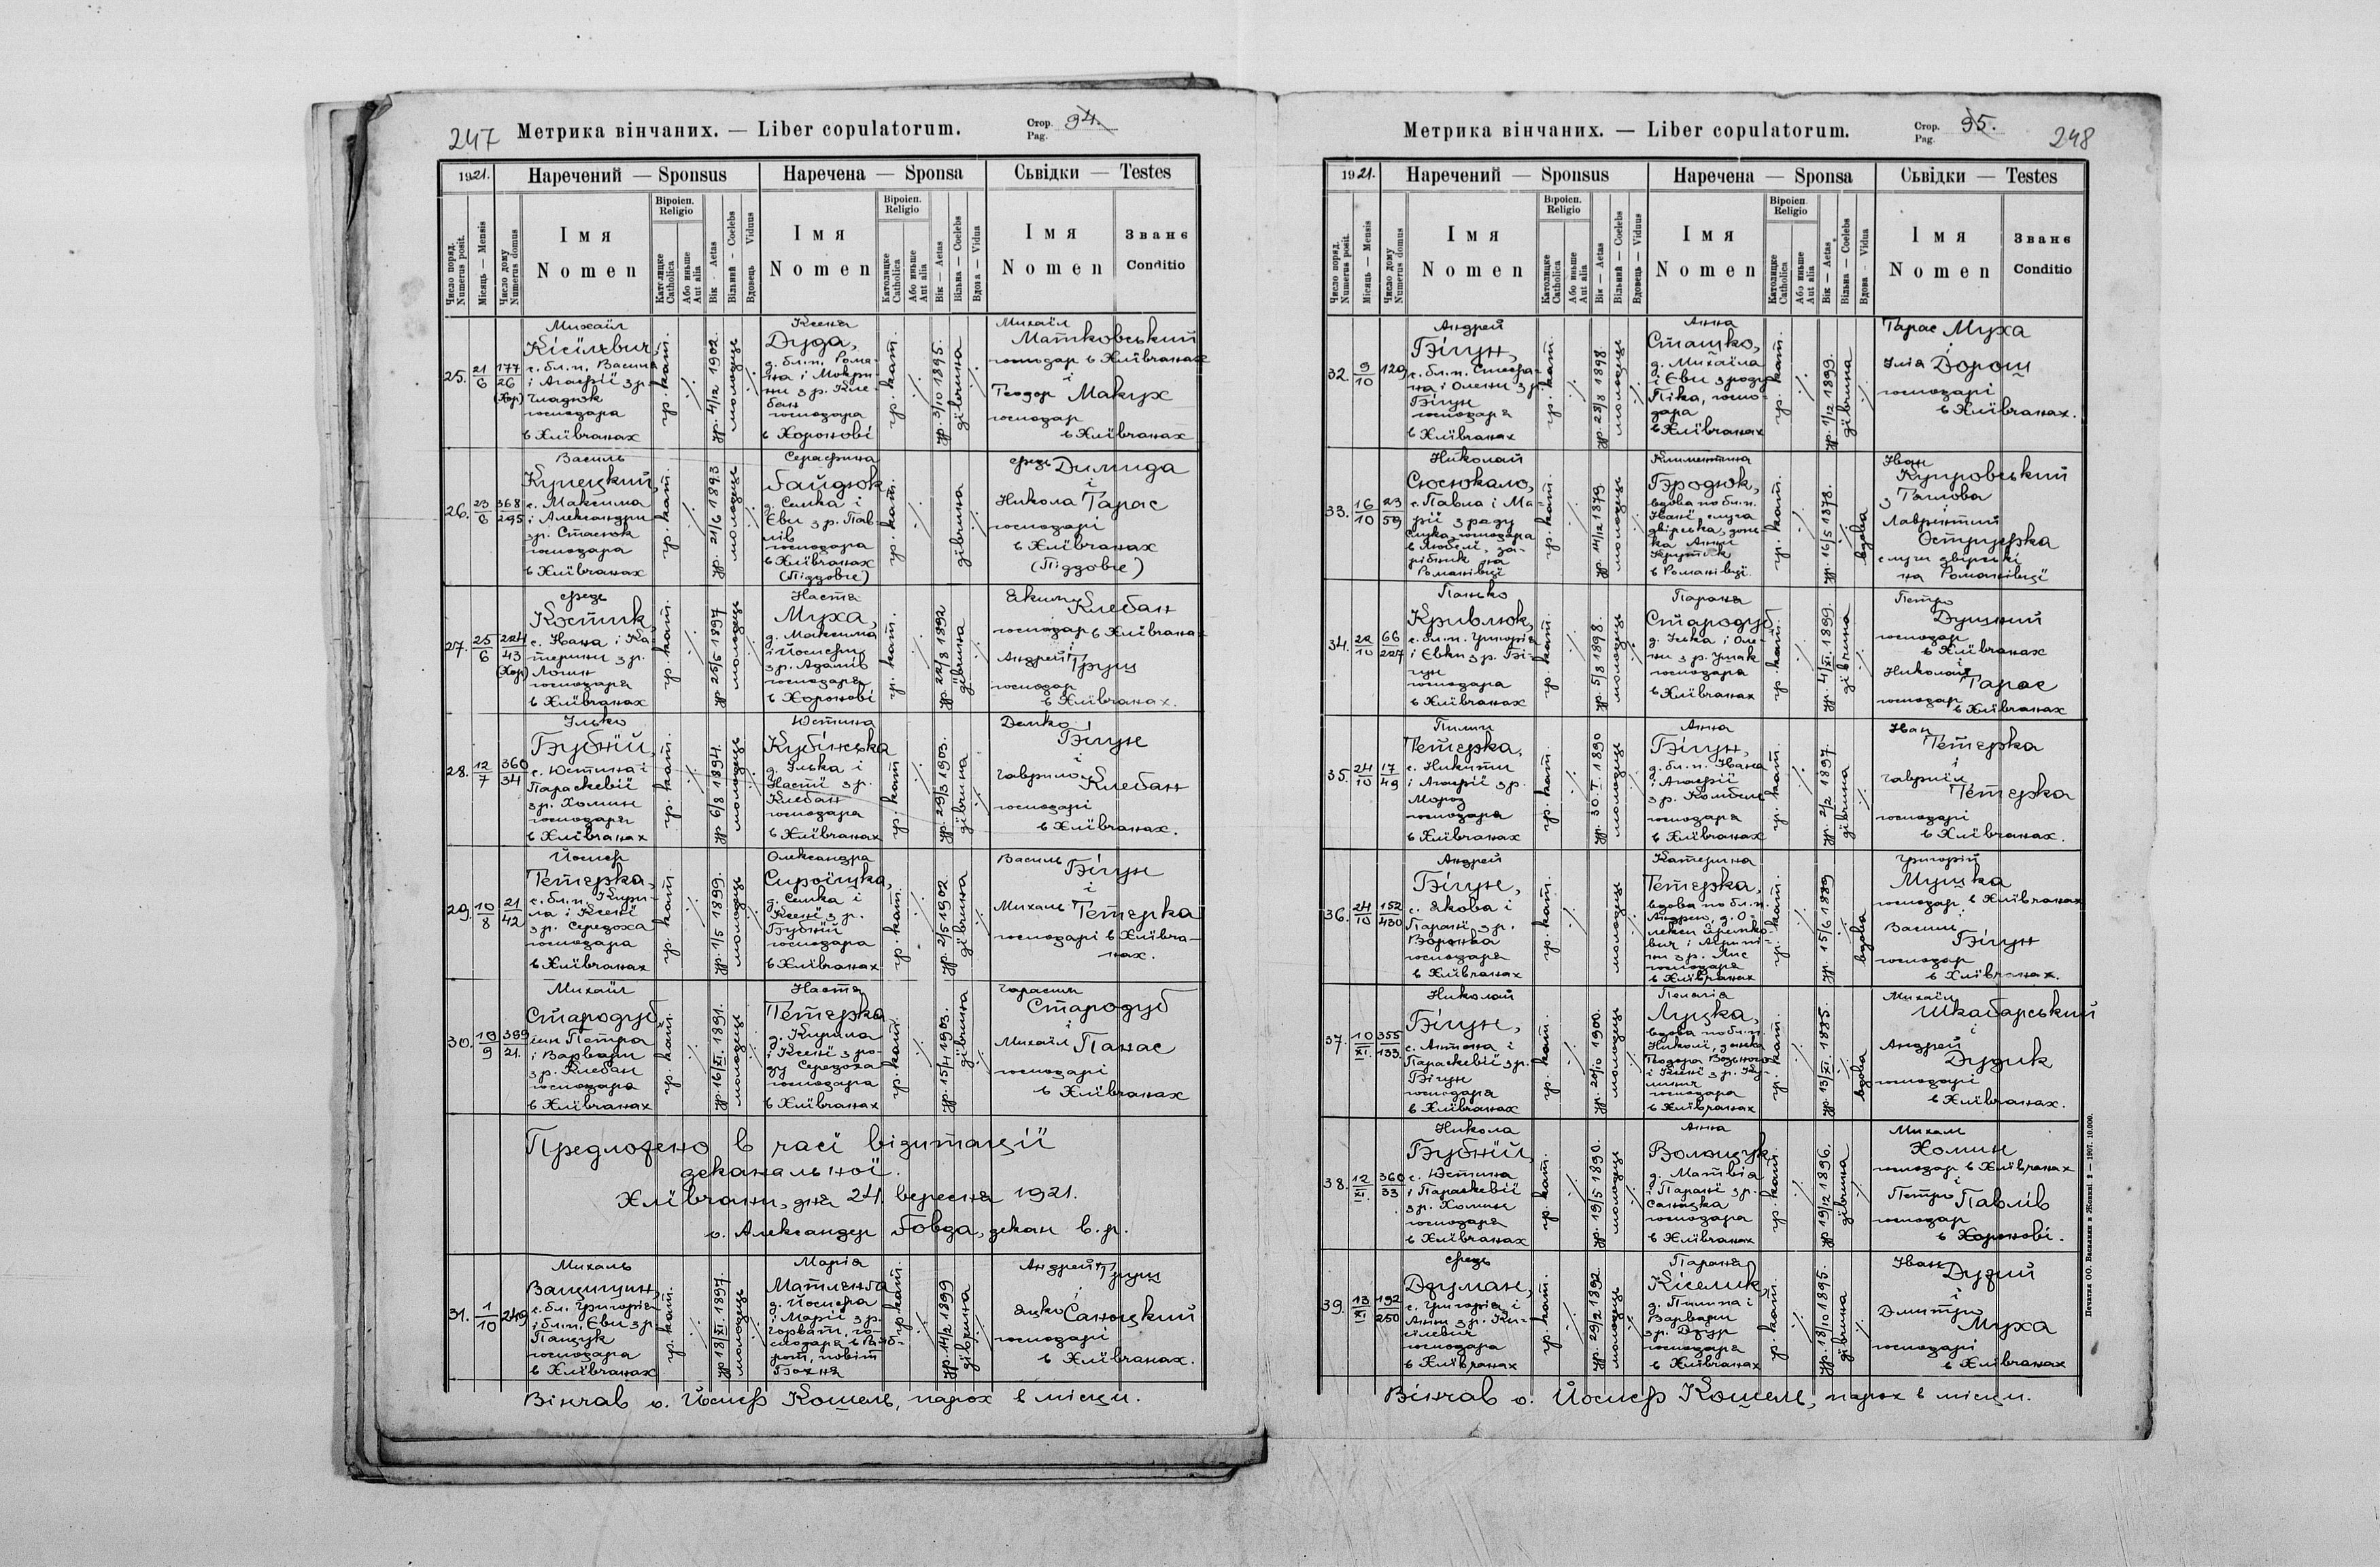 247 Метрика вінчаних. — Liber copulatorum. Стор. Pag. 94.
1921. Наречений — Sponsus Наречена — Sponsa Сьвідки — Testes
Число поряд. Numerus posit.
Місяць — Mensis
Число дому Numerus domus
Імя Nomen
Віроісп. Religio
Католицке Catholica
Або иньше Aut alia
Вік — Aetas
Вільний — Coelebs
Вдовець Viduus
Імя Nomen
Віроісп. Religio
Католицке Catholica
Або иньше Aut alia
Вік — Aetas
Вільна — Coelebs
Вдова — Vidua
Імя Nomen
Званє Conditio
25. 21/6 177/26 (Хор)
Михаїл
Кісілевич,
с. бл. п. Василя
і Агафії з р.
Гладюк
господаря
в Хлївчанах
гр. кат.
ур. 4/12 1902.
молодець
Ксеня
Дуда,
д. бл. п. Рома-
на і Мокри-
ни з р. Кле-
бан
господаря
в Хоронові
гр. кат.
ур. 3/10 1895.
дївчина
Михаїл
Матковський
господар в Хлївчанах
і
Теодор Макух
господар
в Хлївчанах
26. 23/6 368/295
Василь
Купецький,
с. Максима
і Александри
з р. Стасюк
господаря
в Хлївчанах
гр. кат.
ур. 21/6 1893
молодець
Серафина
Гайдюк
д. Семка і
Еви з р. Пав-
лів
господаря
в Хлївчанах
(Піддовге)
гр. кат.
дївчина
Федь Димида
і
Никола Тарас
господарі
в Хлївчанах
(Піддовге)
27. 25/6 224/43 (Хор)
Федь
Костик,
с. Ивана і Ка-
терини з р.
Логин
господаря
в Хлївчанах
гр. кат.
ур 25/5 1897
молодець
Настя
Муха,
д. Максима
і Йосифи
з р. Адамів
господаря
в Хоронові
гр. кат.
ур 22/8 1892
дївчина
Яким Клебан
господар в Хлївчанах
і
Андрей Грущ
господар
в Хлївчанах.
28. 12/7 360/34
Ілько
Бубнїй,
с. Юстина і
Параскевії
з р. Хомин
господаря
в Хлївчанах
гр. кат.
ур 6/8 1894.
молодець
Юстина
Кубінська
д. Ілька і
Насті з р.
Клебан
господаря
в Хлївчанах
гр. кат
ур. 29/3 1903.
дївчина
Демко
Бігун
і
Гаврило Клебан
господарі
в Хлївчанах.
29. 10/8 21/42
Йосиф
Тетерка,
с. бл. п. Кири-
ла і Ксенї
з р. Середоха
господаря
в Хлївчанах
гр. кат
ур. 1/5 1899.
молодець
Олександра
Сироїжка,
д. Семка і
Ксенї з р.
Бубнїй
господаря
в Хлївчанах
гр. кат.
ур. 2/5 1902.
дївчина
Василь Бігун
і
Михаль Тетерка
господарі в Хлївча-
нах.
30. 19/9 399/21.
Михаїл
Стародуб,
син Петра
і Варвари
з р. Клебан
господаря
в Хлївчанах
гр. кат.
ур. 16/XI. 1891.
молодець
Настя
Тетерка
д. Кирила
і Ксенї з ро-
ду Середоха
господаря
в Хлївчанах
гр. кат.
ур. 15/4 1903.
дївчина
Гарасим
Стародуб
і
Михаїл Панас
господарі
в Хлївчанах
Предложено в часї візитації
деканальної.
Хлївчани, дня 24. вересня 1921.
о. Александер Говда, декан в. р.
31. 1/10 249
Михаль
Ващишин,
с. бл. Григорія
і бл. п. Еви з р.
Панцук
господаря
в Хлївчанах
гр. кат.
ур 18/XI. 1897.
молодець
Марія
д. Йосифа
і Марії з р.
Горват, го-
повіт
Бохня
гр. кат.
ур. 14/2 1899
дївчина
Андрей Грущ
і
Яцко Саноцкий
господарі
в Хлївчанах.
Вінчав о. Йосиф Кошель, парох в місци.
Метрика вінчаних. — Liber copulatorum. Стор. Pag. 95. 248
1921. Наречений — Sponsus Наречена — Sponsa Сьвідки — Testes
Число поряд. Numerus posit.
Місяць — Mensis
Число дому Numerus domus
Імя Nomen
Віроісп. Religio
Католицке Catholica
Або иньше Aut alia
Вік — Aetas
Вільний — Coelebs
Вдовець — Viduus
Імя Nomen
Віроісп. Religio
Католицке Catholica
Або иньше Aut alia
Вік — Aetas
Вільна — Coelebs
Вдова — Vidua
Імя Nomen
Званє Conditio
32. 9/10 129
Андрей
Бігун,
с. бл. п. Стефа-
на і Олени з р.
Бігун
господаря
в Хлївчанах
гр. кат.
ур. 28/8 1898.
молодець
Анна
Сташко,
д. Михаїла
і Еви з роду
Піка, госпо-
даря
в Хлївчанах
гр. кат.
ур. 1/12 1899.
дївчина
Тарас Муха
і
Ілія Дорош
господарі
в Хлївчанах.
33. 16/10 23/59
Николай
Сюсюкало,
с. Павла і Ма-
рії з роду
господаря
в Любелї, за-
рібник на
Романівцї
гр. кат.
ур. 14/12 1879.
молодець
Климентина
Бродюк,
вдова по бл. п.
Иванї, слуга
двірська, донь-
ка Анни
в Романівцї.
гр. кат.
ур. 16/5 1878.
вдова
Иван
Купровський
з
Лаврентий
слуги двірські
на Романівцї
34. 22/10 66/227
Панько
Кривлюк,
с. бл. п. Григорія
і Евки з р. Бі-
гун
господаря
в Хлївчанах
гр. кат.
ур. 5/8 1898.
молодець
Параня
Стародуб
д. Ілька і Оле-
ни з р.
господаря
в Хлївчанах
гр. кат.
ур. 4/XI. 1899.
дївчина
Петро
господар
в Хлївчанах
і
Николай Тарас
господар
в Хлївчанах
35. 24/10 17/49
Пилип
Тетерка,
с. Никити
і Агафії з р.
Мороз
господаря
в Хлївчанах
гр. кат.
ур. 30. I. 1890
молодець
Анна
Бігун,
д. бл. п. Ивана
і Агафії
з р.
господаря
в Хлївчанах
гр. кат.
ур. 2/2 1897.
дївчина
Иван
Тетерка
і
Гавриїл
Тетерка
господарі
в Хлївчанах.
36. 24/10 152/430
Андрей
Бігун,
с. Якова і
Паранї з р.
Воронка
господаря
в Хлївчанах
гр. кат.
молодець
Катерина
Тетерка,
вдова по бл. п.
Андрею, д. О-
лекси Яремко-
вич і Агрипі-
ни з р. Лис
господаря
в Хлївчанах
гр. кат.
ур. 15/6 1889
вдова
Григорій
Мушка
господар в Хлївчанах
і
Василь
Бігун
господар
в Хлївчанах.
37. 10/XI. 355/133.
Николай
Бігун,
с. Антона і
Параскевії з р.
Бігун
господаря
в Хлївчанах
гр. кат.
ур. 20/10 1900.
молодець
Пелагія
Луцка,
вдова по бл. п.
Николї, донька
Теодора
і Ксенї з р.
господаря
в Хлївчанах
гр. кат.
ур. 13/XI. 1885.
вдова
Михаїл
Шкабарський
і
Андрей
Дудик
господарі
в Хлївчанах.
38. 12/XI. 360/33
Никола
Бубнїй,
с. Юстина
і Параскевії
з р. Хомин
господаря
в Хлївчанах
гр. кат.
ур. 19/5 1890.
молодець
Анна
Волощук,
д. Матвія
і Паранї з р.
Саноцка
господаря
в Хлївчанах
гр. кат.
ур 19/12 1896.
дївчина
Михаль
Хомин
господар в Хлївчанах
і
Петро Павлів
господар
в Хоронові.
39. 13/XI 192/250
Федь
Дзуман,
с. Григорія і
Анни з р. Кі-
сїлевич
господаря
в Хлївчанах
гр. кат.
ур. 29/2 1892.
молодець
Параня
Кіселик,
д. Пилипа і
Варвари
з р. Дзюр
господаря
в Хлївчанах
гр. кат.
ур. 18/10 1895.
дївчина
Іван Дузий
і
Дмитро
Муха
господарі
в Хлївчанах
Вінчав о. Йосиф Кошель, парох в місци.
Печатня ОО. Василиян в Жовкві 2 — 1907. 10.000.